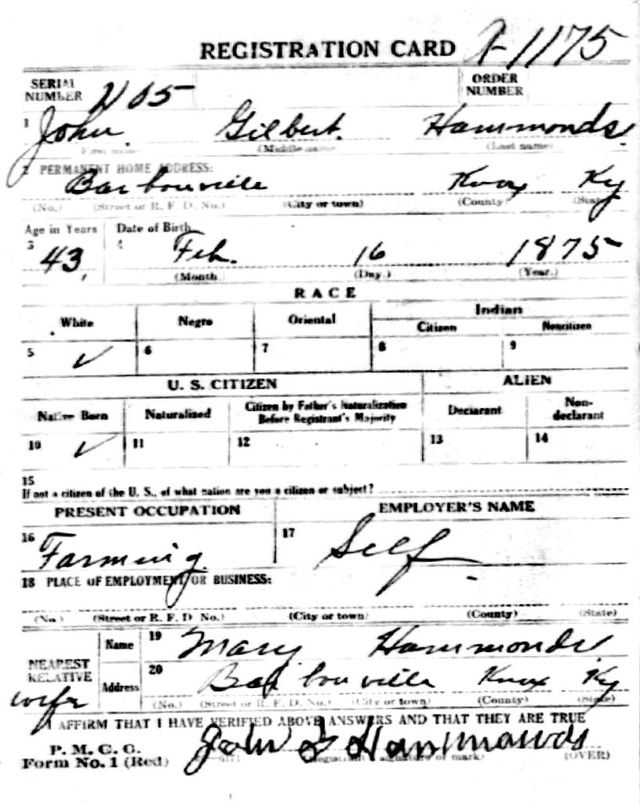 REGISTRATION CARD A-1175
SERIAL NUMBER 2105 ORDER NUMBER
1 John Gilbert Hammonds
First name (Middle name) (Last name)
2 PERMANENT HOME ADDRESS:
Barbourville Knox Ky
(No.) (Street or R. F. D. No.) (City or town) (County) (State)
Age in Years Date of Birth
3 43, 4 Feb. 16 1875
(Month) (Day) (Year)
RACE
White Negro Oriental Indian
Citizen Noncitizen
5 ✓ 6 7 8 9
U. S. CITIZEN ALIEN
Native Born Naturalized Citizen by Father's Naturalization Before Registrant's Majority Declarant Non-declarant
10 ✓ 11 12 13 14
15
If not a citizen of the U. S., of what nation are you a citizen or subject?
PRESENT OCCUPATION EMPLOYER'S NAME
16 Farming 17 Self
18 PLACE OF EMPLOYMENT OR BUSINESS:
(No.) (Street or R. F. D No.) (City or town) (County) (State)
NEAREST RELATIVE Name 19 Mary Hammonds
Address 20 Barbourville Knox Ky
wife (No.) (Street or R. F. D. No.) (City or town) (County) (State)
I AFFIRM THAT I HAVE VERIFIED ABOVE ANSWERS AND THAT THEY ARE TRUE
P. M. G. O.
Form No. 1 (Red) John G Hammonds
(Registrant's signature or mark) (OVER)